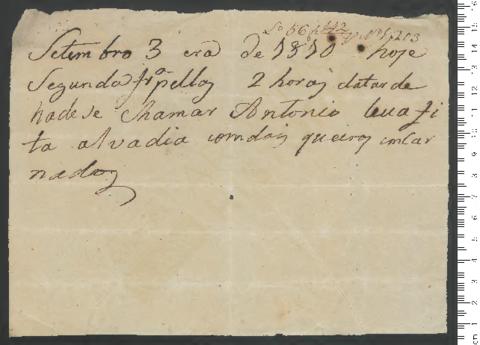 Setembro 3 era de 1810 hoje
Segunda frª pellas 2 horas datarde
hadese Chamar Antonio leva fi
ta alvadia comdois queiros incar
nados